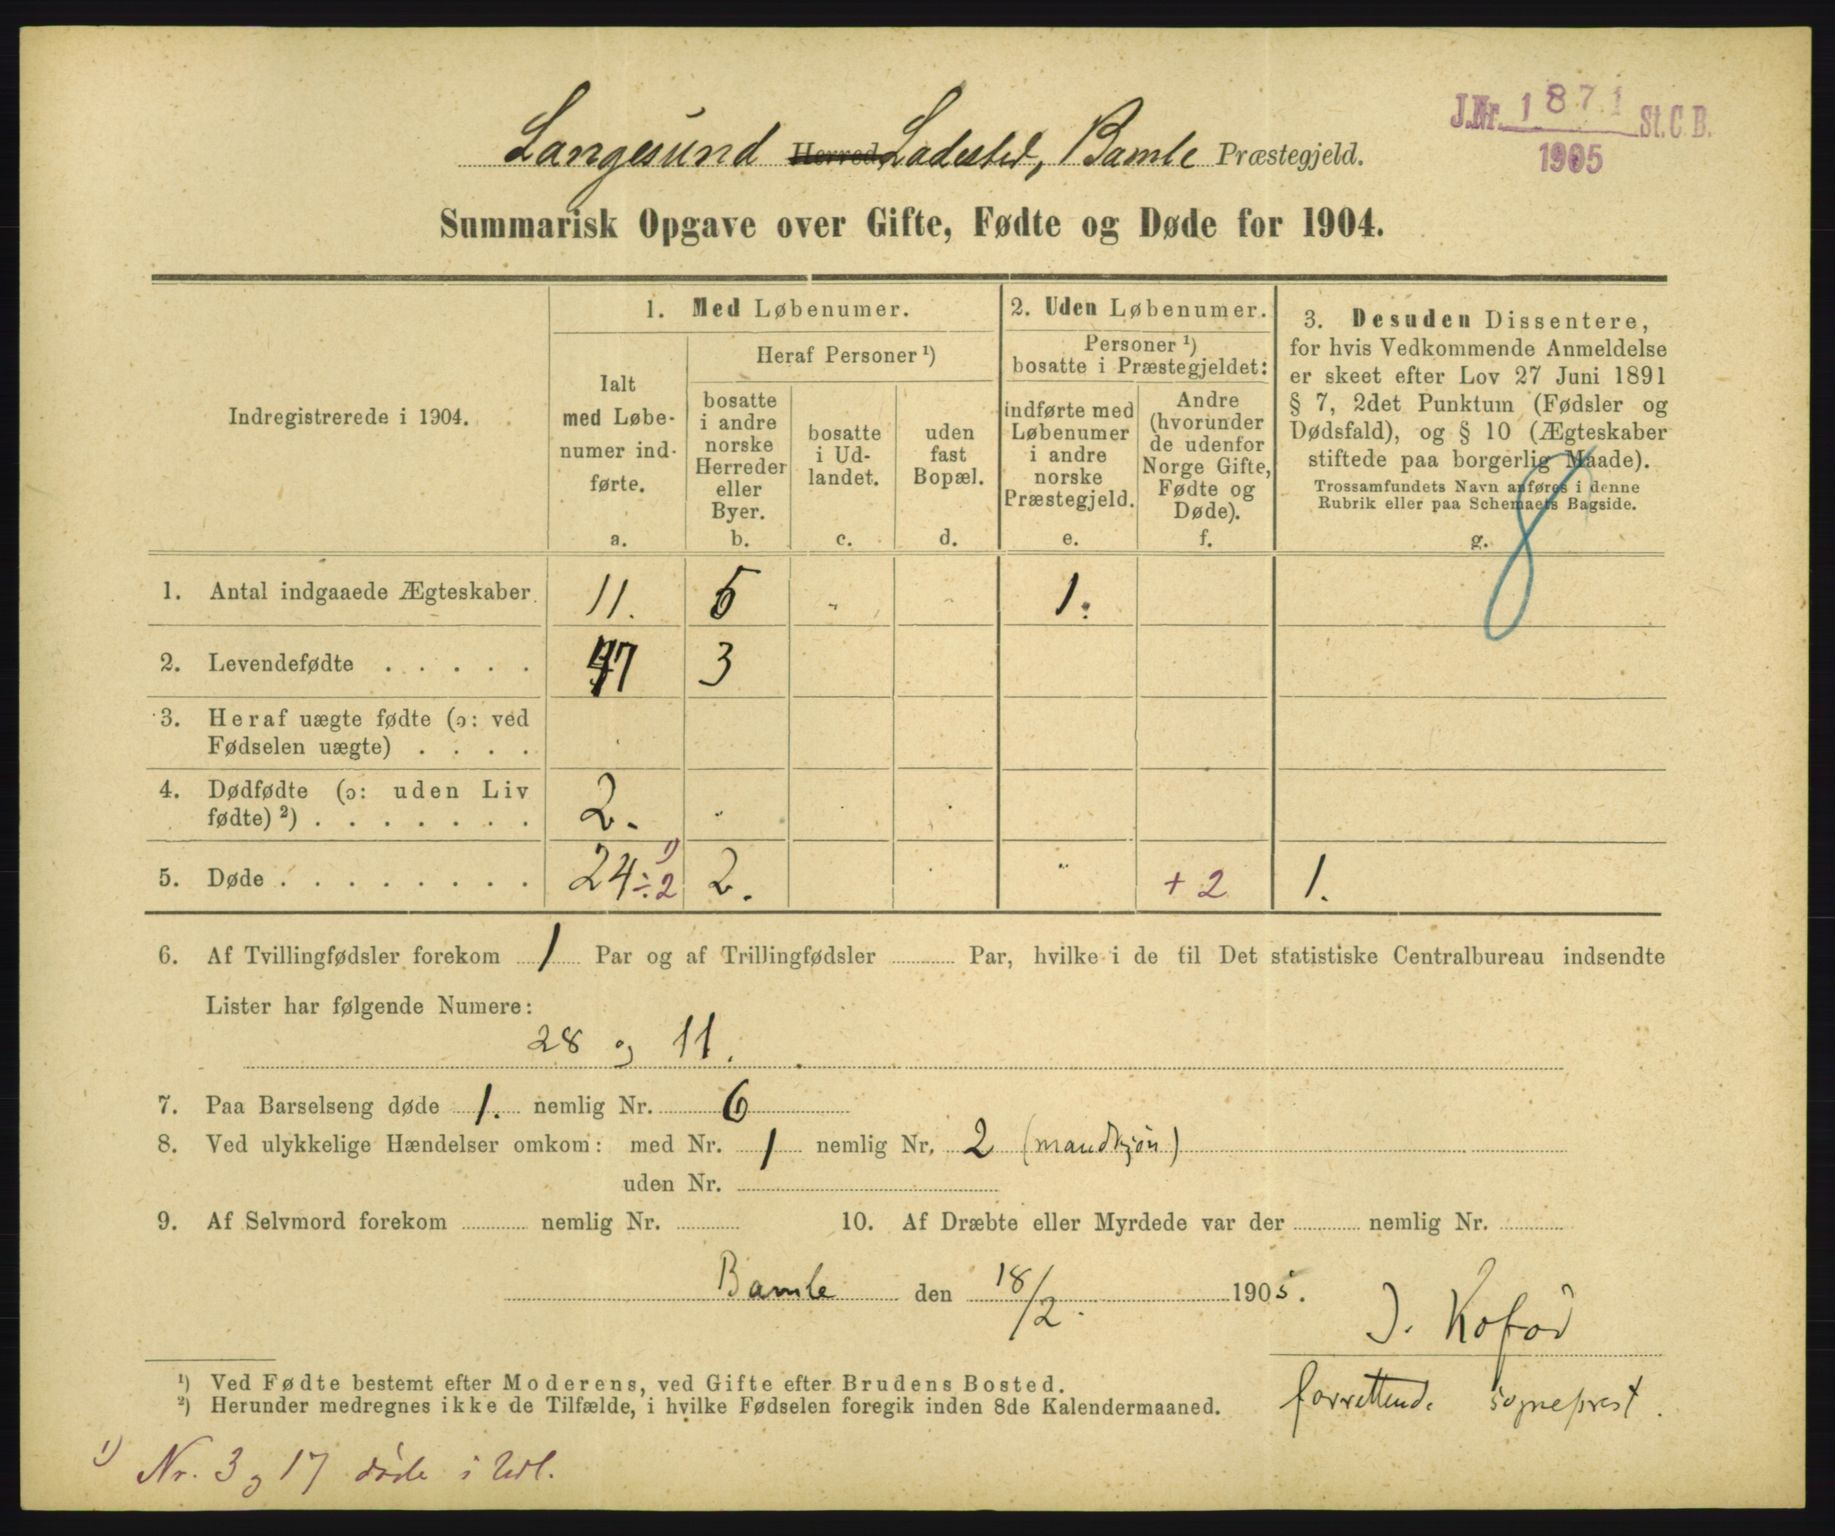 J.Nr. 1871 St.C.B.
1905
Langesund Herred, Ladested, Bamle Præstegjeld.
Summarisk Opgave over Gifte, Fødte og Døde for 1904.
Indregistrerede i 1904.
1. Med Løbenumer.
Ialt
med Løbe-
numer ind-
førte.
a.
Heraf Personer ¹)
bosatte
i andre
norske
Herreder
eller
Byer.
b.
bosatte
i Ud-
landet.
c.
uden
fast
Bopæl.
d.
2. Uden Løbenumer.
Personer ¹)
bosatte i Præstegjeldet:
indførte med
Løbenumer
i andre
norske
Præstegjeld.
e.
Andre
(hvorunder
de udenfor
Norge Gifte,
Fødte og
Døde).
f.
3. Desuden Dissentere,
for hvis Vedkommende Anmeldelse
er skeet efter Lov 27 Juni 1891
§ 7, 2det Punktum (Fødsler og
Dødsfald), og § 10 (Ægteskaber
stiftede paa borgerlig Maade).
Trossamfundets Navn anføres i denne
Rubrik eller paa Schemaets Bagside.
g.
8
1. Antal indgaaede Ægteskaber 11. 5 „ „ 1.
2. Levendefødte . . . . . 47 3
3. Heraf uægte fødte (ɔ: ved
Fødselen uægte) . . . .
4. Dødfødte (ɔ: uden Liv
fødte) ²) . . . . . . . 2. „
5. Døde . . . . . . . . . 24 ÷ 2 ¹) 2. „ + 2 1.
6. Af Tvillingfødsler forekom 1 Par og af Trillingfødsler Par, hvilke i de til Det statistiske Centralbureau indsendte
Lister har følgende Numere:
28 og 11.
7. Paa Barselseng døde 1. nemlig Nr. 6
8. Ved ulykkelige Hændelser omkom: med Nr. 1 nemlig Nr. 2 (mandkjøn)
uden Nr.
9. Af Selvmord forekom nemlig Nr. 10. Af Dræbte eller Myrdede var der nemlig Nr.
Bamle den 18/2. 1905.
J. Kofod
forrettende sogneprest.
¹) Ved Fødte bestemt efter Moderens, ved Gifte efter Brudens Bosted.
²) Herunder medregnes ikke de Tilfælde, i hvilke Fødselen foregik inden 8de Kalendermaaned.
¹) Nr. 3 og 17 døde i Udl.